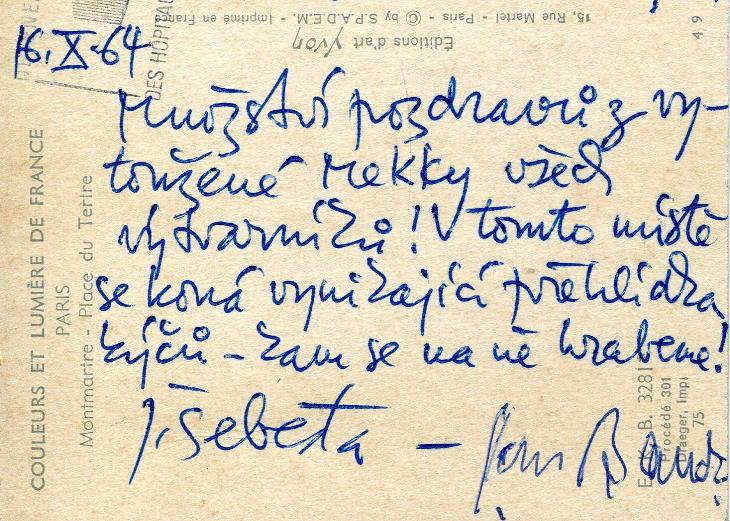 16. X. 64
DES HÔPITA
Množství pozdravů z vy-
toužené Mekky všech
výtvarníků! V tomto místě
se koná vynikající přehlídka
kýčů – kam se na ně hrabeme!
J. Šebeta –
COULEURS ET LUMIÈRE DE FRANCE
PARIS
Montmartre - Place du Tertre
Éditions d'art Yvon
15, Rue Martel - Paris - © by S.P.A.D.E.M. - Imprimé en France
49
B. 3281
Procédé 301
Draeger, Imp
75